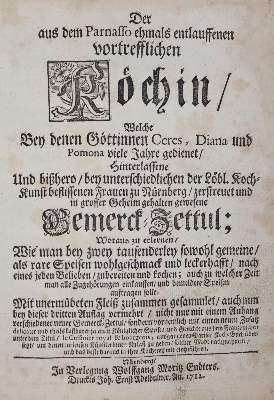 Der
aus dem Parnasso ehmals entlauffenen
vortrefflichen
Köchin/
Welche
Bey denen Göttinnen Ceres, Diana und
Pomona viele Jahre gedienet/
Hinterlassene
Und bißhero/ bey unterschiedlichen der Löbl. Koch-
Kunst beflissenen Frauen zu Nürnberg/ zerstreuet und
in grosser Geheim gehalten gewesene
Gemerck-Zettul;
Woraus zu erlernen/
Wie man bey zwey tausenderley sowohl gemeine/
als rare Speisen wohlgeschmack und leckerhafft/ nach
eines jeden Belieben/ zubereiten und kochen; auch zu welcher Zeit
man alle Zugehörungen einkauffen/ und bemeldete Speisen
aufftragen solle.
Mit unermüdeten Fleiß zusammen gesammlet/ auch nun
bey dieser dritten Aufflag vermehrt/ nicht nur mit einem Anhang
verschiedener neuer Gemerck-Zettul/ sondern
unter dem Titul/
Nürnberg/
In Verlegung Wolffgang Moritz Endters.
Druckts Joh. Ernst Adelbulner. An. 1712.